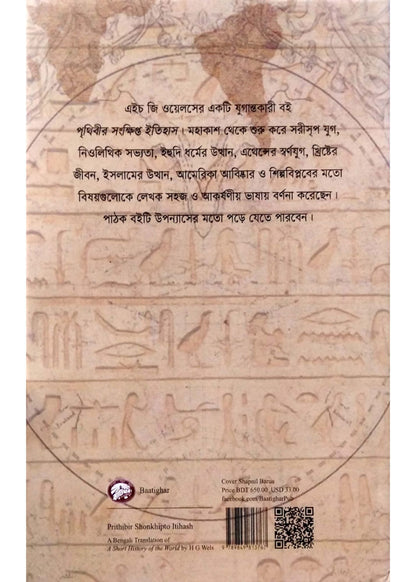 এইচ জি ওয়েলসের একটি যুগান্তকারী বই
পৃথিবীর সংক্ষিপ্ত ইতিহাস। মহাকাশ থেকে শুরু করে সরীসৃপ যুগ,
নিওলিথিক সভ্যতা, ইহুদি ধর্মের উত্থান, এথেন্সের স্বর্ণযুগ, খ্রিষ্টের
জীবন, ইসলামের উত্থান, আমেরিকা আবিষ্কার ও শিল্পবিপ্লবের মতো
বিষয়গুলোকে লেখক সহজ ও আকর্ষণীয় ভাষায় বর্ণনা করেছেন।
পাঠক বইটি উপন্যাসের মতো পড়ে যেতে পারবেন।
Baatighar
Cover Shapnil Barua
Price BDT 650.00 USD 33.00
facebook.com/BaatigharPub
Prithibir Shonkhipto Itihash
A Bengali Translation of
A Short History of the World by H G Wels